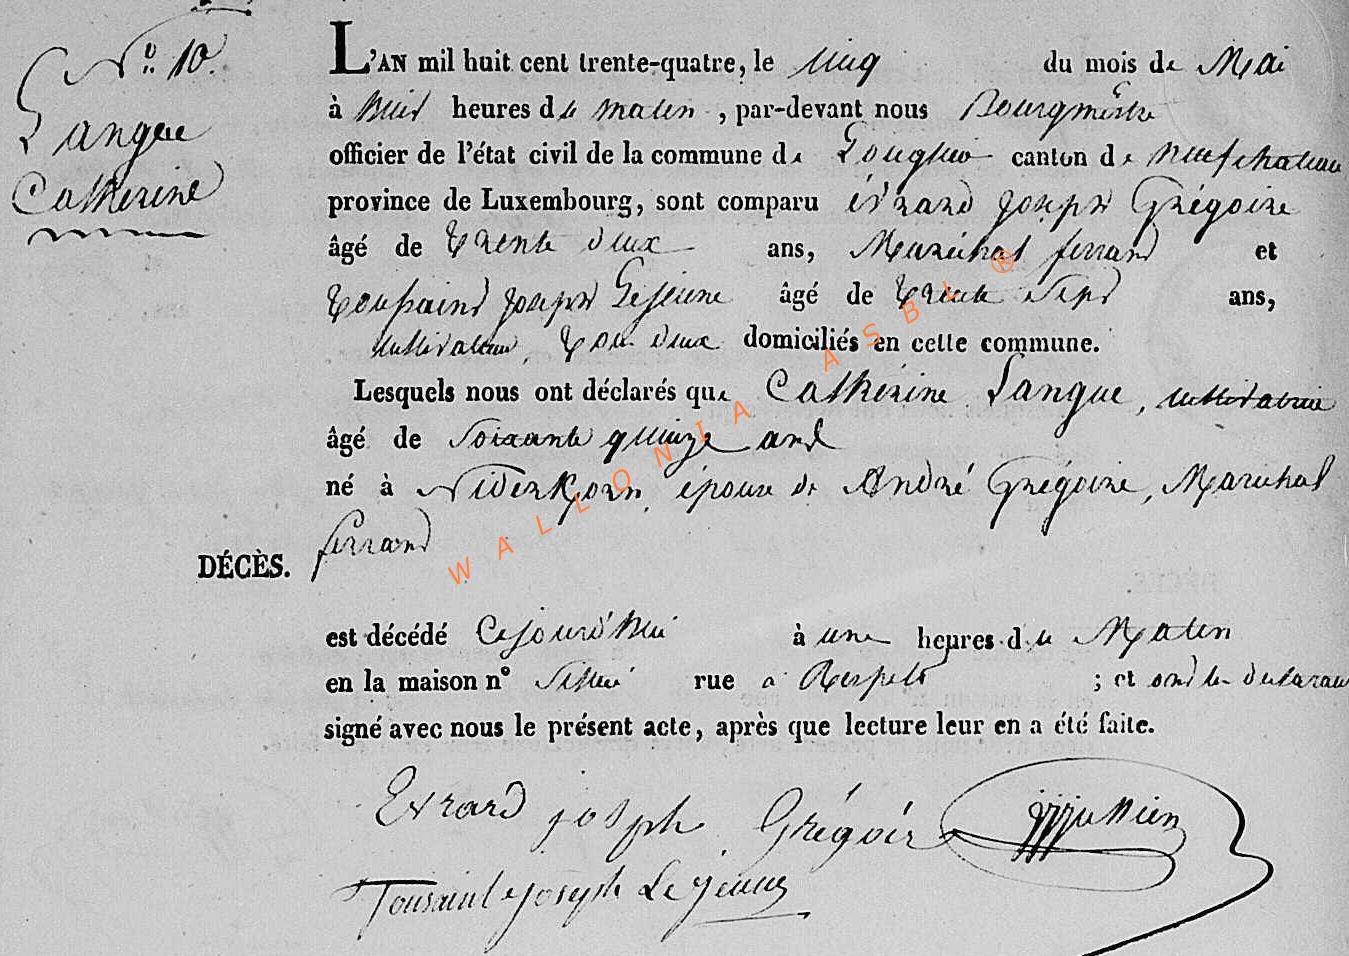 N° 10.
Langue
Catherine
L'AN mil huit cent trente-quatre, le cinq du mois de Mai
à huit heures du matin, par-devant nous Bourgmestre
officier de l'état civil de la commune de Longlier canton de neufchateau
province de Luxembourg, sont comparu évrard joseph Grégoire
âgé de trente deux ans, Maréchal ferrand et
toussaint joseph Lejeune âgé de trente sept ans,
cultivateur, tou deux domiciliés en cette commune.
Lesquels nous ont déclarés que Catherine Langue, cultivatrice
âgé de soixante quinze ans
né à Niderkorn, épouse de André Grégoire, Maréchal
ferrand
DÉCÈS.
est décédé Cejourd'hui à une heures du Matin
en la maison n° située rue à Respelt ; et ont les déclarans
signé avec nous le présent acte, après que lecture leur en a été faite.
Evrard joseph Grégoir
Tousaint joseph Le jeune
WALLONIA ASBL ®